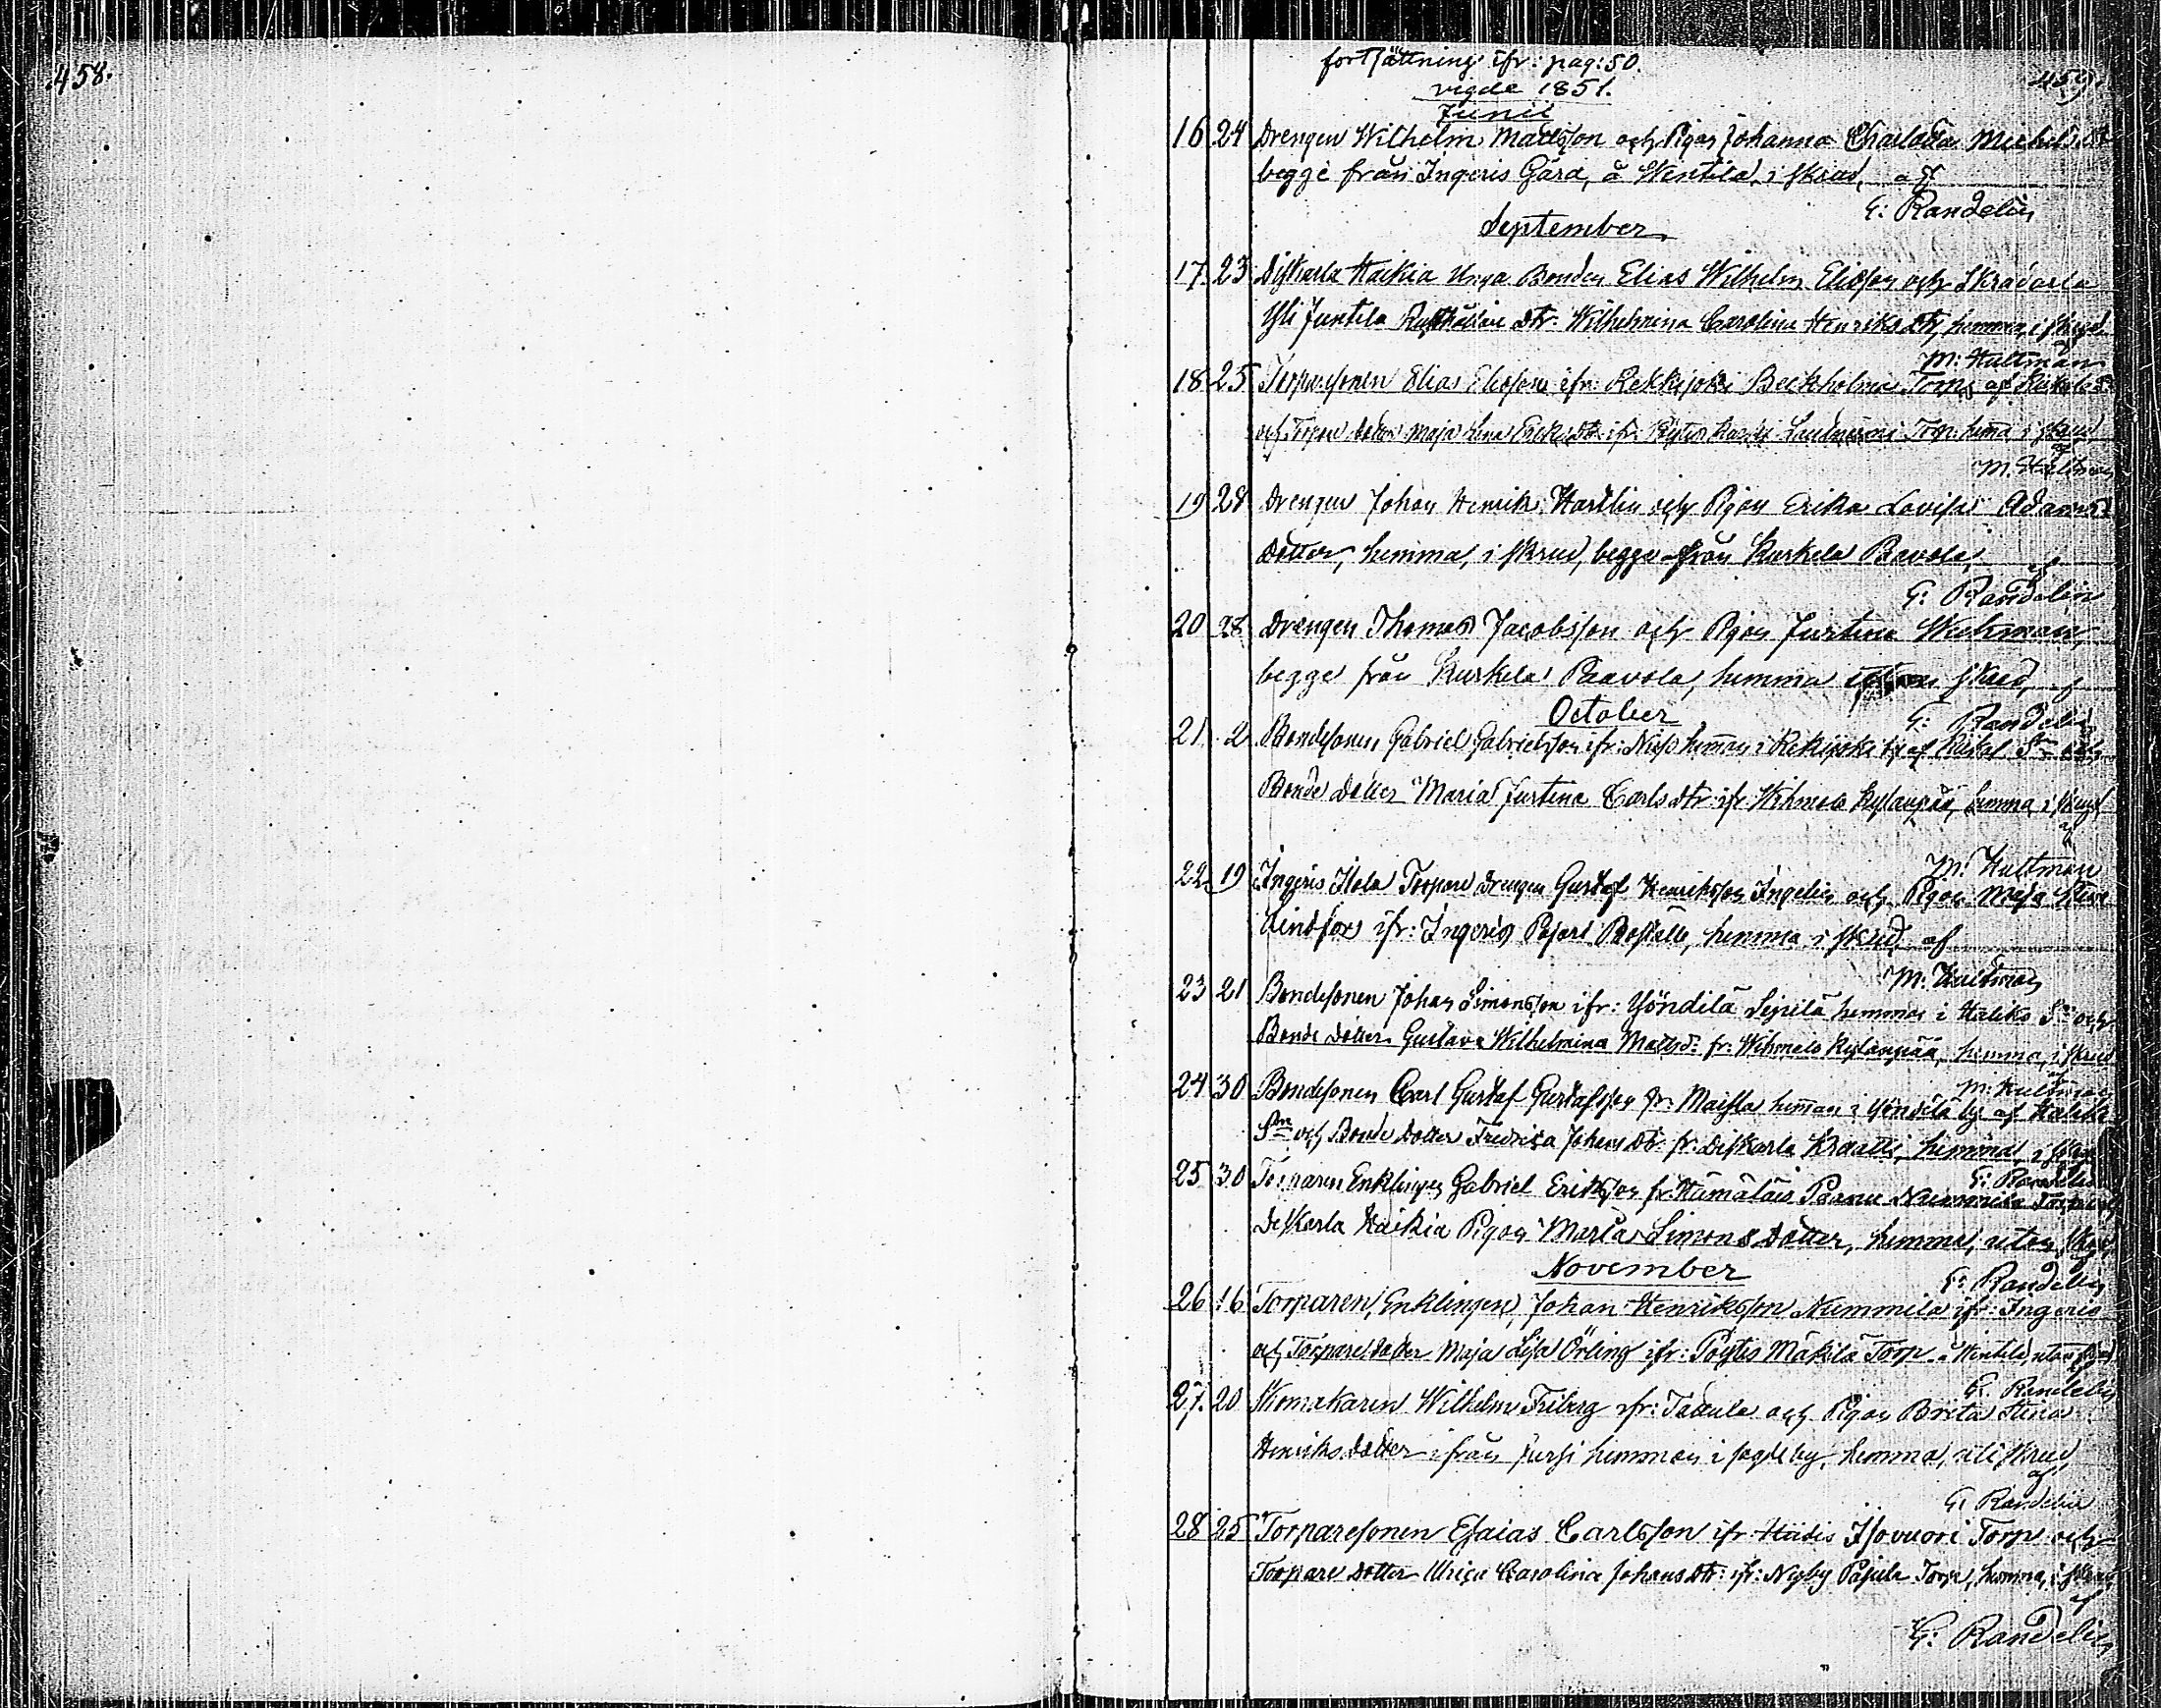 458.
fortsättning ifr: pag: 50.
459.
vigde 1851.
Junii
16 24 Drengen Wilhelm Mattsson och Pigan Johanna Charlotta Michelsdr
begge från Ingeris Gård, å Wentilä, i skrud, af
G: Randelin
September
17. 23 Diskarla Haikia Unga Bonden Elias Wilhelm Eliasson och
Yli Juntila Rusthållare dtr. Wilhelmina Carolina Henriksdtr, hemma, i skrud
M: Hultman
18 25 Torparesonen Elias Eliasson ifr: Rekkijoki Beckholm Torp af
och Torpare dotter Maja Lena Eriksdtr ifr: Torp hema i skrud
af
M. Hultman
19 28 Drengen Johan Henrik Hartlin och Pigan Erika Lovisa Adams
Dotter, hemma, i skrud, begge från Kurkela Pavola,
af
G: Randelin
20 28 Drengen Thomas Jacobsson och Pigan Justina Wickman,
begge från Kurkela Paavola, hemma utan skrud, af
October
G: Randelin
21. 2 Bondesonen Gabriel Gabrielsson ifr: heman i Rekijoki by af Sn och
Bonde Dotter Maria Justina Carlsdtr ifr Wihmalo Kylänpää, hemma, i skrud
af
M: Hultman
22. 19 Ingeris Torpare Drengen Gustaf Henriksson Ingelin och Pigan Maja Stina
Lindfors ifr: Ingeris Pajari Boställe, hemma i skrud af
M: Hultman
23 21 Bondesonen Johan Simonsson ifr: Yöndilä Sipilä hemman i Haliko Sn och
Bonde Dotter Gustava Wilhelmina Mattsd: fr: Wihmalo Kylänpää, hemma, i skrud
M: Hultman
24 30 Bondesonen Carl Gustaf Gustafsson fr: Maisla heman i Yöndilä by af Haliko
Sn och Bonde Dotter Fredrica Johansdtr: fr: Diskarla Kraatti, hemma, i skrud
G: Randelin
25 30 Torparen Enklingen Gabriel Eriksson fr: Hämäläis Paanu Torp och
Diskarla Haikia Pigan Maria Simons Dotter, hemma, utan skrud,
November
G: Randelin
26 16 Torparen, Enklingen, Johan Henriksson Nummila ifr: Ingeris
och Torpare dotter Maja Lisa Örling ifr: Pöytis Mäkilä Torp å Wentilä, utan skrud
G. Randelin
27. 20 Skomakaren Wilhelm Friberg ifr: och Pigan Brita Stina
Henriksdotter ifrån hemman i by, hemma, uti skrud,
af
G: Randelin
28 25 Torparesonen Esaias Carlsson ifr: Hiidis Isovuori Torp och
Torpare dotter Ulrica Carolina Johansdtr: ifr: Nyby Pajula Torp, hemma, i skrud
af
G: Randelin